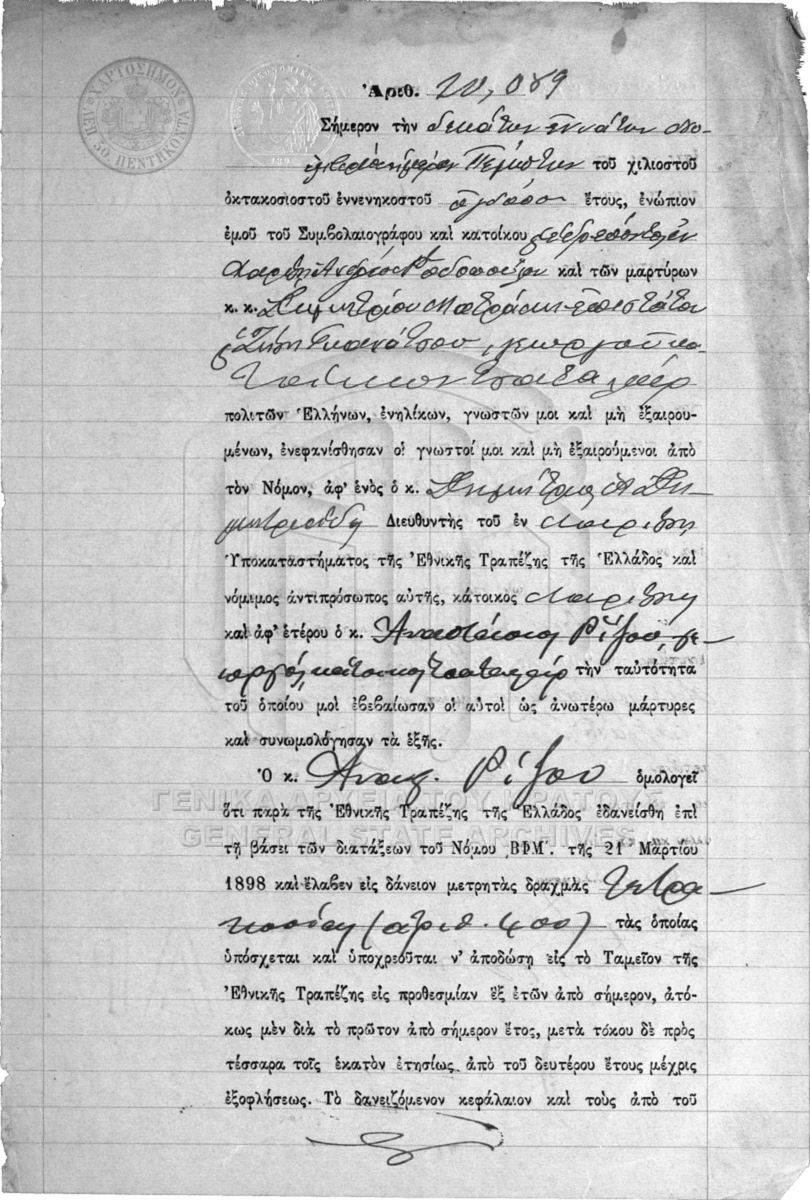 ΧΑΡΤΟΣΗΜΟΝ
ΛΕΠ. 50 ΠΕΝΤΗΚΟΝΤΑ
Ἀριθ. 20,089
Σήμερον τὴν δεκάτην ἐννάτην Ὀκ-
ἡμέραν Πέμπτην τοῦ χιλιοστοῦ
ὀκτακοσιοστοῦ ἐννενηκοστοῦ ὀγδόου ἔτους, ἐνώπιον
ἐμοῦ τοῦ Συμβολαιογράφου καὶ κατοίκου
καὶ τῶν μαρτύρων
κ. κ. Δημητρίου
γεωργοῦ κα-
τοίκων
πολιτῶν Ἑλλήνων, ἐνηλίκων, γνωστῶν μοι καὶ μὴ ἐξαιρου-
μένων, ἐνεφανίσθησαν οἱ γνωστοί μοι καὶ μὴ ἐξαιρούμενοι ἀπὸ
τὸν Νόμον, ἀφ' ἑνὸς ὁ κ. Δημήτριος Δη-
μητριάδης Διευθυντὴς τοῦ ἐν Λαρίσῃ
Ὑποκαταστήματος τῆς Ἐθνικῆς Τραπέζης τῆς Ἑλλάδος καὶ
νόμιμος ἀντιπρόσωπος αὐτῆς, κάτοικος Λαρίσης
καὶ ἀφ' ἑτέρου ὁ κ. Ἀναστάσιος Ρίζου γε-
ωργὸς κάτοικος τὴν ταὐτότητα
τοῦ ὁποίου μοὶ ἐβεβαίωσαν οἱ αὐτοὶ ὡς ἀνωτέρω μάρτυρες
καὶ συνωμολόγησαν τὰ ἑξῆς.
Ὁ κ. Ἀναστ. Ρίζου ὁμολογεῖ
ΓΕΝΙΚΑ ΑΡΧΕΙΑ ΤΟΥ ΚΡΑΤΟΥΣ
ὅτι παρὰ τῆς Ἐθνικῆς Τραπέζης τῆς Ἑλλάδος ἐδανείσθη ἐπὶ
GENERAL STATE ARCHIVES
τῇ βάσει τῶν διατάξεων τοῦ Νόμου ͵ΒΦΜ΄. τῆς 21 Μαρτίου
1898 καὶ ἔλαβεν εἰς δάνειον μετρητὰς δραχμὰς τετρα-
κοσίας (ἀριθ. 400) τὰς ὁποίας
ὑπόσχεται καὶ ὑποχρεοῦται ν' ἀποδώσῃ εἰς τὸ Ταμεῖον τῆς
Ἐθνικῆς Τραπέζης εἰς προθεσμίαν ἓξ ἐτῶν ἀπὸ σήμερον, ἀτό-
κως μὲν διὰ τὸ πρῶτον ἀπὸ σήμερον ἔτος, μετὰ τόκου δὲ πρὸς
τέσσαρα τοῖς ἑκατὸν ἐτησίως ἀπὸ τοῦ δευτέρου ἔτους μέχρις
ἐξοφλήσεως. Τὸ δανειζόμενον κεφάλαιον καὶ τοὺς ἀπὸ τοῦ